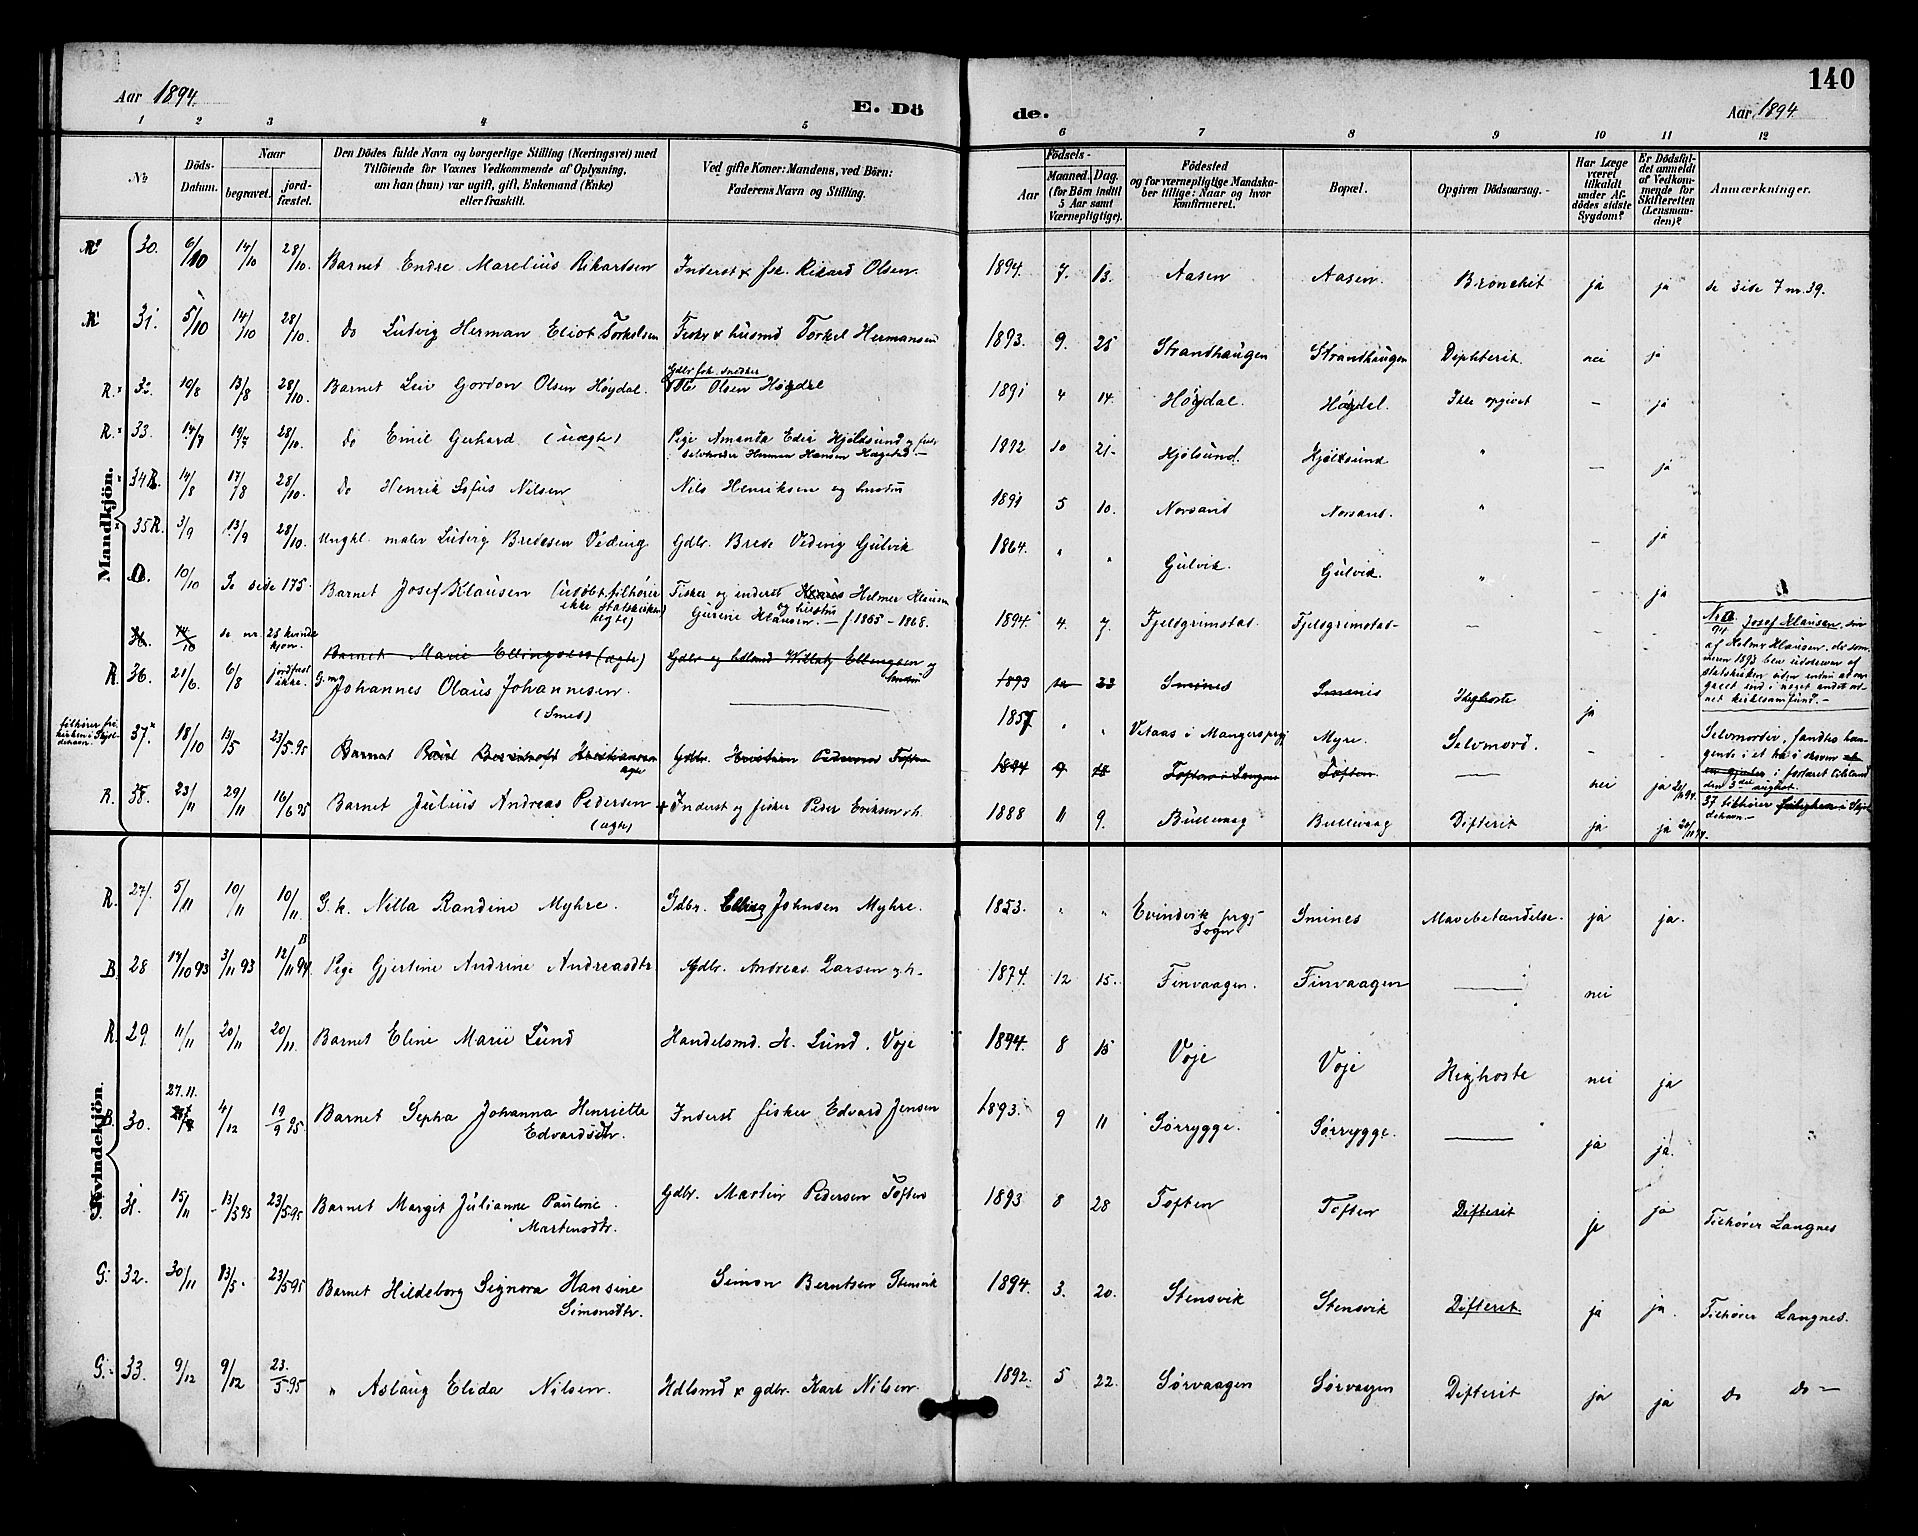 140
Aar 1894.
E. Döde.
Aar 1894.
1 2 3 4 5 6 7 8 9 10 11 12
No.
Döds-Datum.
Naar
begravet.
jord-fæstet.
Den Dödes fulde Navn og borgerlige Stilling (Næringsvei) med
Tilföiende för Voxnes Vedkommende af Oplysning,
om han (hun) var ugift, gift, Enkemand (Enke)
eller fraskilt.
Ved gifte Koner: Mandens, ved Börn:
Faderens Navn og Stilling.
Födsels-
Aar
Maaned. Dag.
(for Börn indtil
5 Aar samt
Værnepligtige).
Födested
og for værnepligtige Mandska-
ber tillige: Naar og hvor
konfirmeret.
Bopæl.
Opgiven Dödsaarsag.
Har Læge
været
tilkaldt
under Af-
dödes sidste
Sygdom?
Er Dödsfal-
det anmeldt
af Vedkom-
mende for
Skifteretten
(Lensman-
den)?
Anmærkninger.
Mandkjön.
30. 6/10 14/10 28/10. Barnet Endre Marelius Rikardsen Inderst & fsk. Rikard Olsen. 1894. 7. 13. Aasen Aasen. Bronchit ja ja se side 7 nr. 39.
31. 5/10 14/10 28/10. do Ludvig Herman Eliot Torkelsen Fisker & husmd Torkel Hermansen 1893. 9. 25 Strandhaugen Strandhaugen Diphterit. nei ja
R. 32. 10/8 13/8 28/10. Barnet Leiv Gordon Olsen Høydal. Gdbr. fsk. snedker
Ole Olsen Høydal 1891 4 14. Høydal. Høydal. Ikke opgivet — ja
R. 33. 14/7 19/7 28/10. do Emil Gerhard (uægte) Pige Amanda Edia Hjølsund og
selveier Herman Hansen 1892 10 21. Hjølsund. Hjølsund " — ja
34 R. 14/8 17/8 28/10. do Henrik Sofus Nilsen Nils Henriksen og hustru 1891 5 10. Norsand Norsand. " ja
35 R. 3/9 13/9 28/10. Ungkl. maler Ludvig Bredesen Veding Gdbr. Brede Veding Gulvik 1864. " " Gulvik Gulvik. " — ja
0. 10/10 Se side 175. Barnet Josef Klausen (udøbt, tilhører
ikke statskirken)
ægte) Fisker og inderst Helmer Klausen
og hustru
Gurine Klausen. — f. 1865 - 1868. 1894. 4. 7. Fjeldgrimstad. Fjeldgrimstad — — —
No 0/94 Josef Klausen, søn
af Helmer Klausen, de som-
meren 1893 blev uddøvet af
statskirken uden endnu at væ-
re traadt ind i noget andet ord-
net kirkesamfund. —
36. 14/10 se nr. 25 kvinde
kjøn. Barnet Marie Ellingsen (ægte) Gdbr og Willatz Ellingsen og
hustru 1893 23 Smines Smines Kighoste ja
R. 36. 21/6. 6/8 jordfæst
ikke. G.m. Johannes Olaus Johannesen.
(Smed) 1857 " " Vetaas i Mangers prgj Myre. Selvmord. — — Selvmorder, fandtes hæn-
gende i et træ i skoven
37. 18/10 13/5 23/5.95 Barnet Kristiansen
ægte Gdbr. Kristian Pedersen Toften 1894 9 Toften Toften — nei ja
tilhører fri-
kirken i
37 tilhører
R. 38. 23/11 29/11 16/6 95 Barnet Julius Andreas Pedersen
(ægte) Inderst og fisker Peder Eriksen & h. 1888 11 9. Bullvaag Bullvaag Difterit ja ja
Kvindekjön.
R. 27. 5/11 10/11 10/11. G. k. Nilla Randine Myhre. Gdbr. Elling Johnsen Myhre. 1853. " " Evindvik prgj
Sogn Smines Mavebetændelse. ja ja.
B. 28 14/10 93 3/11 93 12/11 94. Pige Gjertine Andrine Andreasdtr Gdbr. Andreas Larsen & h. 1874. 12 15. Finvaagen. Finvaagen — nei
R. 29 11/11 20/11 20/11. Barnet Eline Marie Lund Handelsmd. H. Lund. Voje 1894. 8 15 Voje Voje Kighoste nei ja
B. 30. 27.11. 4/12 19/9 95. Barnet Sepha Johanna Henriette
Edvardsdtr. Inderst fisker Edvard Jensen 1893. 9 11 Sørrygge. Sørrygge. — ja ja.
31. 15/11 13/5 95 23/5 95 Barnet Margit Julianne Pauline
Martensdtr. Gdbr. Martin Pedersen Toften 1893 8 28 Toften Toften Difterit ja ja Tilhører Langnes
G. 32. 30/11 13/5. 23/5 95 Barnet Hildeborg Signora Hansine
Simonsdtr. Simon Berntsen Stensvik 1894. 3. 20. Stensvik Stensvik Difterit. ja ja. Tilhører Langnes.
G. 33. 9/12 9/12 23/5 95 " Aslaug Elida Nilsen. Hdlsmd & gdbr. Karl Nilsen. 1892. 5 22. Sørvaagen Sørvaagen Difterit ja ja do do —